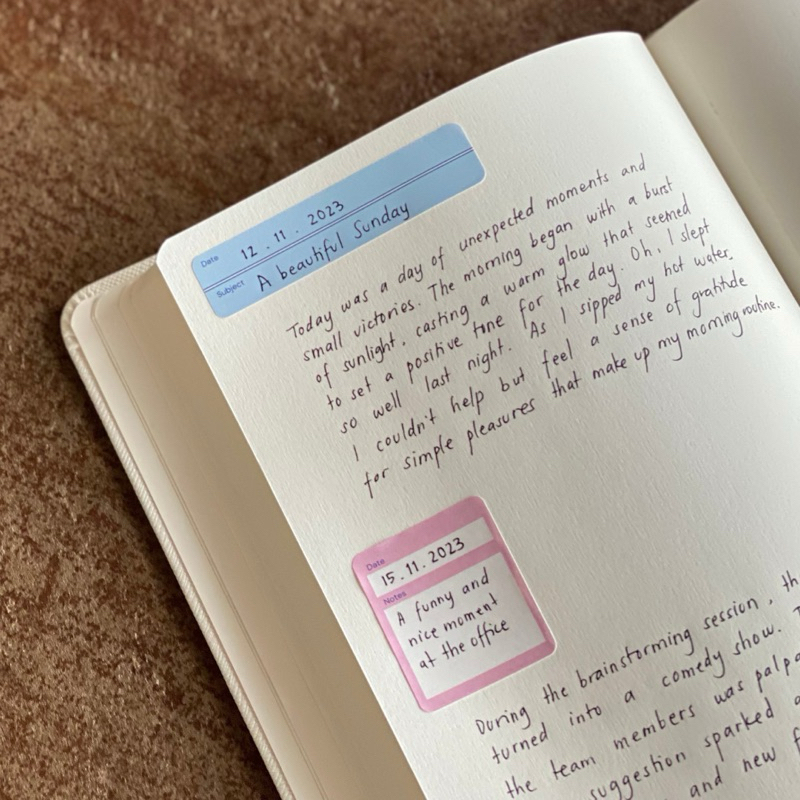 Date 12.11.2023
Subject A beautiful Sunday
Today was a day of unexpected moments and
small victories. The morning began with a burst
of sunlight, casting a warm glow that seemed
to set a positive tone for the day. Oh, I slept
so well last night. As I sipped my hot water,
I couldn't help but feel a sense of gratitude
for simple pleasures that make up my morning routine.
Date
15.11.2023
Notes
A funny and
nice moment
at the office
During the brainstorming session, th
turned into a comedy show.
the team members was palpa
suggestion sparked
and new